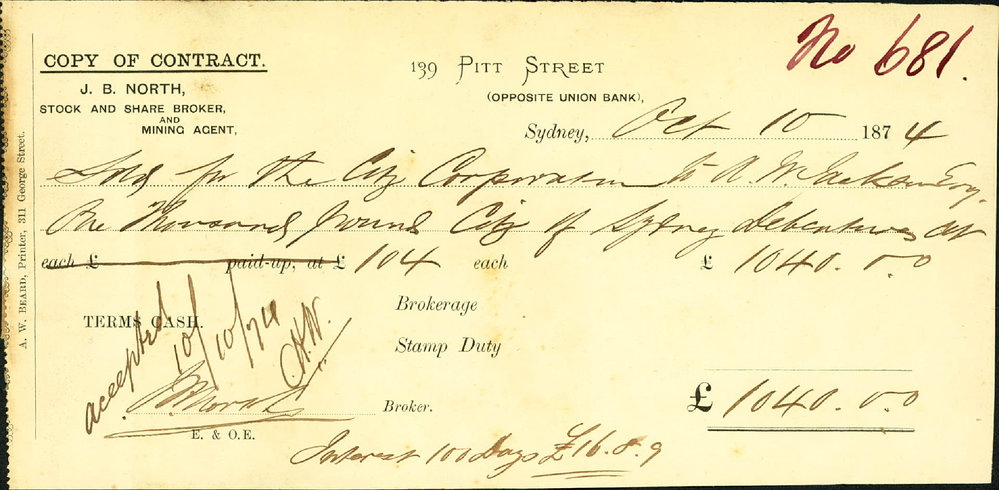 No 681.
COPY OF CONTRACT.
J. B. NORTH,
STOCK AND SHARE BROKER,
AND
MINING AGENT,
139 PITT STREET
(OPPOSITE UNION BANK),
Sydney, Oct 10 1874
Sold for the City Corporation to A. W. Jackson Esq.
One Thousand pounds City of Sydney Debentures at
each £ paid-up, at £ 104 each £ 1040.0.0
Brokerage
TERMS CASH.
Stamp Duty
accepted
10/10/74
Broker.
£ 1040.0.0
E. & O.E.
Interest 100 Days £16.8.9
A. W. BEARD, Printer, 311 George Street.